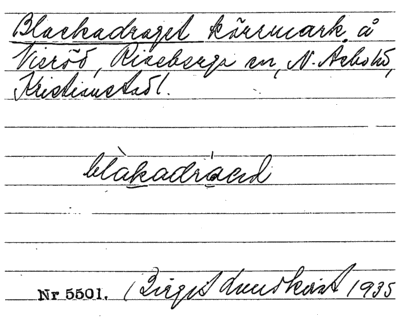 Blackadraget kärrmark å
Vieröd, Riseberga sn, N. Åsbo hd,
Kristianstad l.
blàkadráəd
Nr 5501. Birget Lundkvist 1935